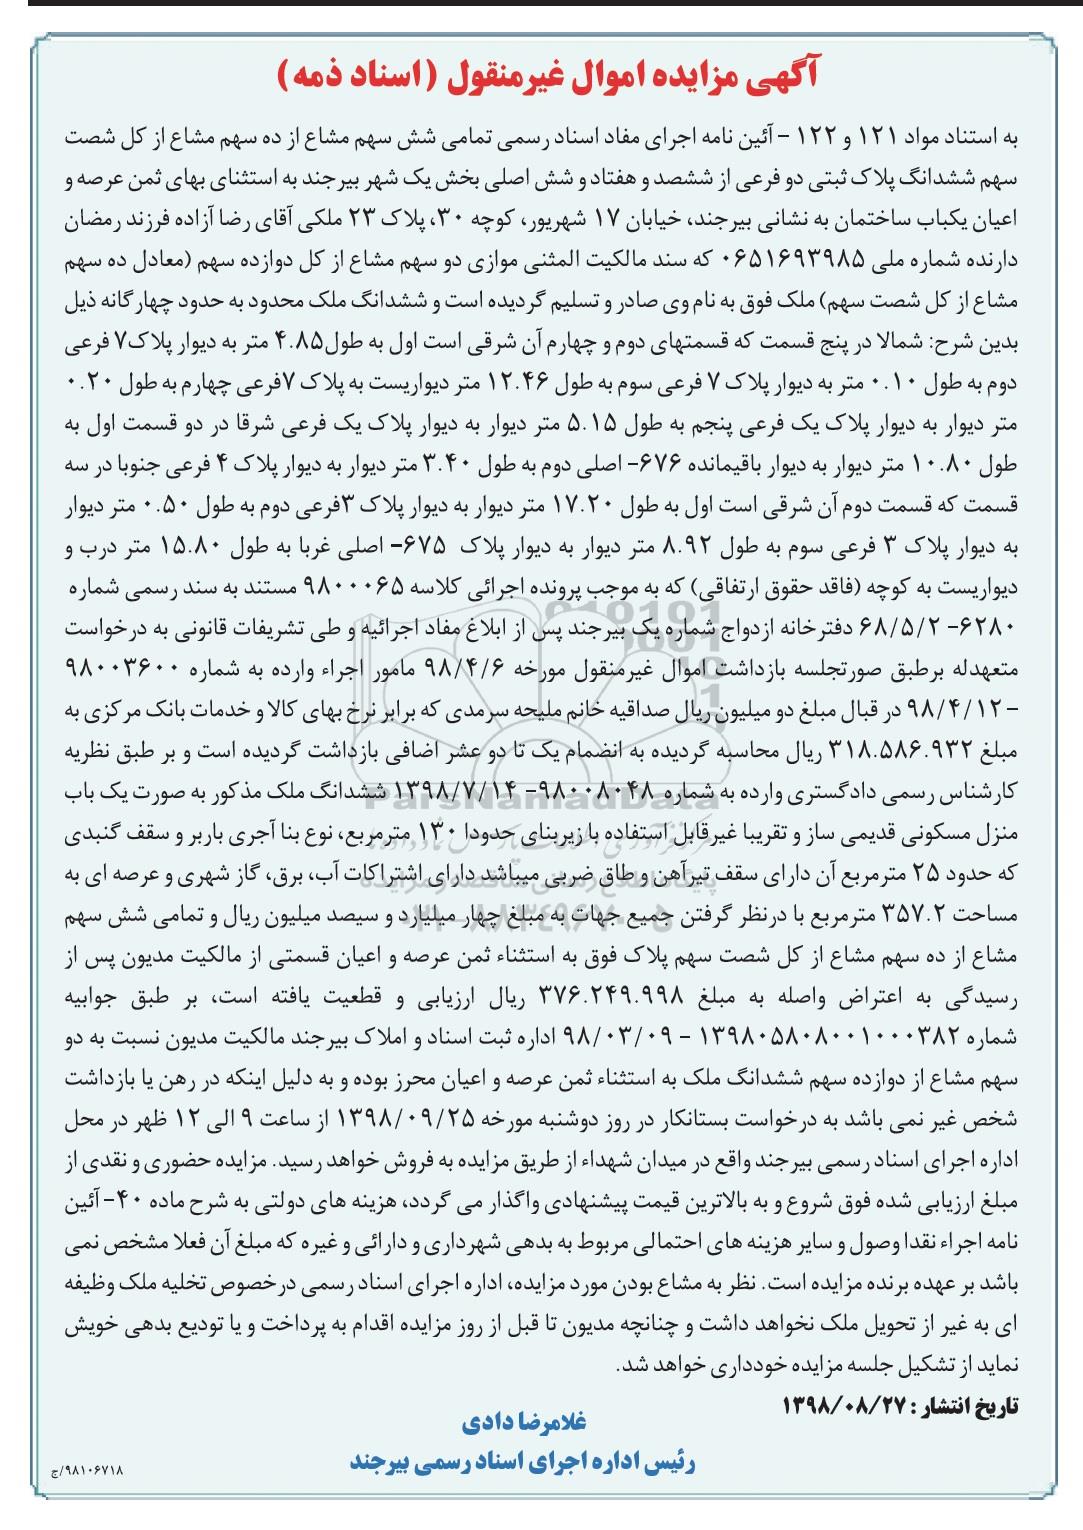 آگهی مزایده اموال غیرمنقول (اسناد ذمه)
به استناد مواد ۱۲۱ و ۱۲۲ – آئین نامه اجرای مفاد اسناد رسمی تمامی شش سهم مشاع از ده سهم مشاع از کل شصت
سهم ششدانگ پلاک ثبتی دو فرعی از ششصد و هفتاد و شش اصلی بخش یک شهر بیرجند به استثنای بهای ثمن عرصه و
اعیان یکباب ساختمان به نشانی بیرجند، خیابان ۱۷ شهریور، کوچه ۳۰، پلاک ۲۳ ملکی آقای رضا آزاده فرزند رمضان
دارنده شماره ملی ۰۶۵۱۶۹۳۹۸۵ که سند مالکیت المثنی موازی دو سهم مشاع از کل دوازده سهم (معادل ده سهم
مشاع از کل شصت سهم) ملک فوق به نام وی صادر و تسلیم گردیده است و ششدانگ ملک محدود به حدود چهارگانه ذیل
بدین شرح: شمالا در پنج قسمت که قسمتهای دوم و چهارم آن شرقی است اول به طول۴.۸۵ متر به دیوار پلاک۷ فرعی
دوم به طول ۰.۱۰ متر به دیوار پلاک ۷ فرعی سوم به طول ۱۲.۴۶ متر دیواریست به پلاک ۷فرعی چهارم به طول ۰.۲۰
متر دیوار به دیوار پلاک یک فرعی پنجم به طول ۵.۱۵ متر دیوار به دیوار پلاک یک فرعی شرقا در دو قسمت اول به
طول ۱۰.۸۰ متر دیوار به دیوار باقیمانده ۶۷۶- اصلی دوم به طول ۳.۴۰ متر دیوار به دیوار پلاک ۴ فرعی جنوبا در سه
قسمت که قسمت دوم آن شرقی است اول به طول ۱۷.۲۰ متر دیوار به دیوار پلاک ۳فرعی دوم به طول ۰.۵۰ متر دیوار
به دیوار پلاک ۳ فرعی سوم به طول ۸.۹۲ متر دیوار به دیوار پلاک ۶۷۵- اصلی غربا به طول ۱۵.۸۰ متر درب و
دیواریست به کوچه (فاقد حقوق ارتفاقی) که به موجب پرونده اجرائی کلاسه ۹۸۰۰۰۶۵ مستند به سند رسمی شماره
۶۲۸۰- ۶۸/۵/۲ دفترخانه ازدواج شماره یک بیرجند پس از ابلاغ مفاد اجرائیه و طی تشریفات قانونی به درخواست
متعهدله برطبق صورتجلسه بازداشت اموال غیرمنقول مورخه ۹۸/۴/۶ مامور اجراء وارده به شماره ۹۸۰۰۳۶۰۰
- ۹۸/۴/۱۲ در قبال مبلغ دو میلیون ریال صداقیه خانم ملیحه سرمدی که برابر نرخ بهای کالا و خدمات بانک مرکزی به
مبلغ ۳۱۸.۵۸۶.۹۳۲ ریال محاسبه گردیده به انضمام یک تا دو عشر اضافی بازداشت گردیده است و بر طبق نظریه
کارشناس رسمی دادگستری وارده به شماره ۹۸۰۰۸۰۴۸- ۱۳۹۸/۷/۱۴ ششدانگ ملک مذکور به صورت یک باب
منزل مسکونی قدیمی ساز و تقریبا غیرقابل استفاده با زیربنای حدودا ۱۳۰ مترمربع، نوع بنا آجری باربر و سقف گنبدی
که حدود ۲۵ مترمربع آن دارای سقف تیرآهن و طاق ضربی میباشد دارای اشتراکات آب، برق، گاز شهری و عرصه ای به
مساحت ۳۵۷.۲ مترمربع با درنظر گرفتن جمیع جهات به مبلغ چهار میلیارد و سیصد میلیون ریال و تمامی شش سهم
مشاع از ده سهم مشاع از کل شصت سهم پلاک فوق به استثناء ثمن عرصه و اعیان قسمتی از مالکیت مدیون پس از
رسیدگی به اعتراض واصله به مبلغ ۳۷۶.۲۴۹.۹۹۸ ریال ارزیابی و قطعیت یافته است، بر طبق جوابیه
شماره ۱۳۹۸۰۵۸۰۸۰۰۱۰۰۰۳۸۲ - ۹۸/۰۳/۰۹ اداره ثبت اسناد و املاک بیرجند مالکیت مدیون نسبت به دو
سهم مشاع از دوازده سهم ششدانگ ملک به استثناء ثمن عرصه و اعیان محرز بوده و به دلیل اینکه در رهن یا بازداشت
شخص غیر نمی باشد به درخواست بستانکار در روز دوشنبه مورخه ۱۳۹۸/۰۹/۲۵ از ساعت ۹ الی ۱۲ ظهر در محل
اداره اجرای اسناد رسمی بیرجند واقع در میدان شهداء از طریق مزایده به فروش خواهد رسید. مزایده حضوری و نقدی از
مبلغ ارزیابی شده فوق شروع و به بالاترین قیمت پیشنهادی واگذار می گردد، هزینه های دولتی به شرح ماده ۴۰- آئین
نامه اجراء نقدا وصول و سایر هزینه های احتمالی مربوط به بدهی شهرداری و دارائی و غیره که مبلغ آن فعلا مشخص نمی
باشد بر عهده برنده مزایده است. نظر به مشاع بودن مورد مزایده، اداره اجرای اسناد رسمی درخصوص تخلیه ملک وظیفه
ای به غیر از تحویل ملک نخواهد داشت و چنانچه مدیون تا قبل از روز مزایده اقدام به پرداخت و یا تودیع بدهی خویش
نماید از تشکیل جلسه مزایده خودداری خواهد شد.
تاریخ انتشار : ۱۳۹۸/۰۸/۲۷
غلامرضا دادی
رئیس اداره اجرای اسناد رسمی بیرجند
۹۸۱۰۶۷۱۸/ج
ParsNamadData